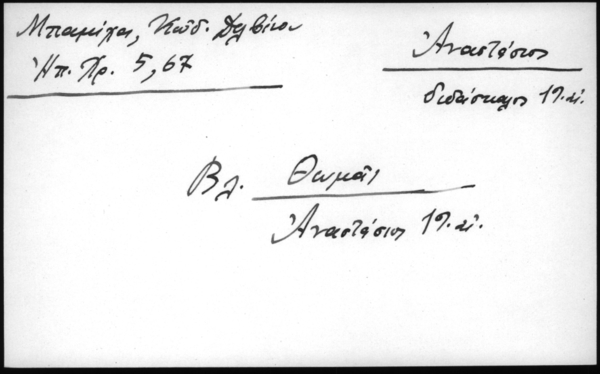 Μπαμίχα, Κώδ. Δελβίνου
Ἠπ. Χρ. 5, 67
Ἀναστάσιος
διδάσκαλος 19. αἰ.
Βλ. Θωμᾶς
Ἀναστάσιος 19. αἰ.